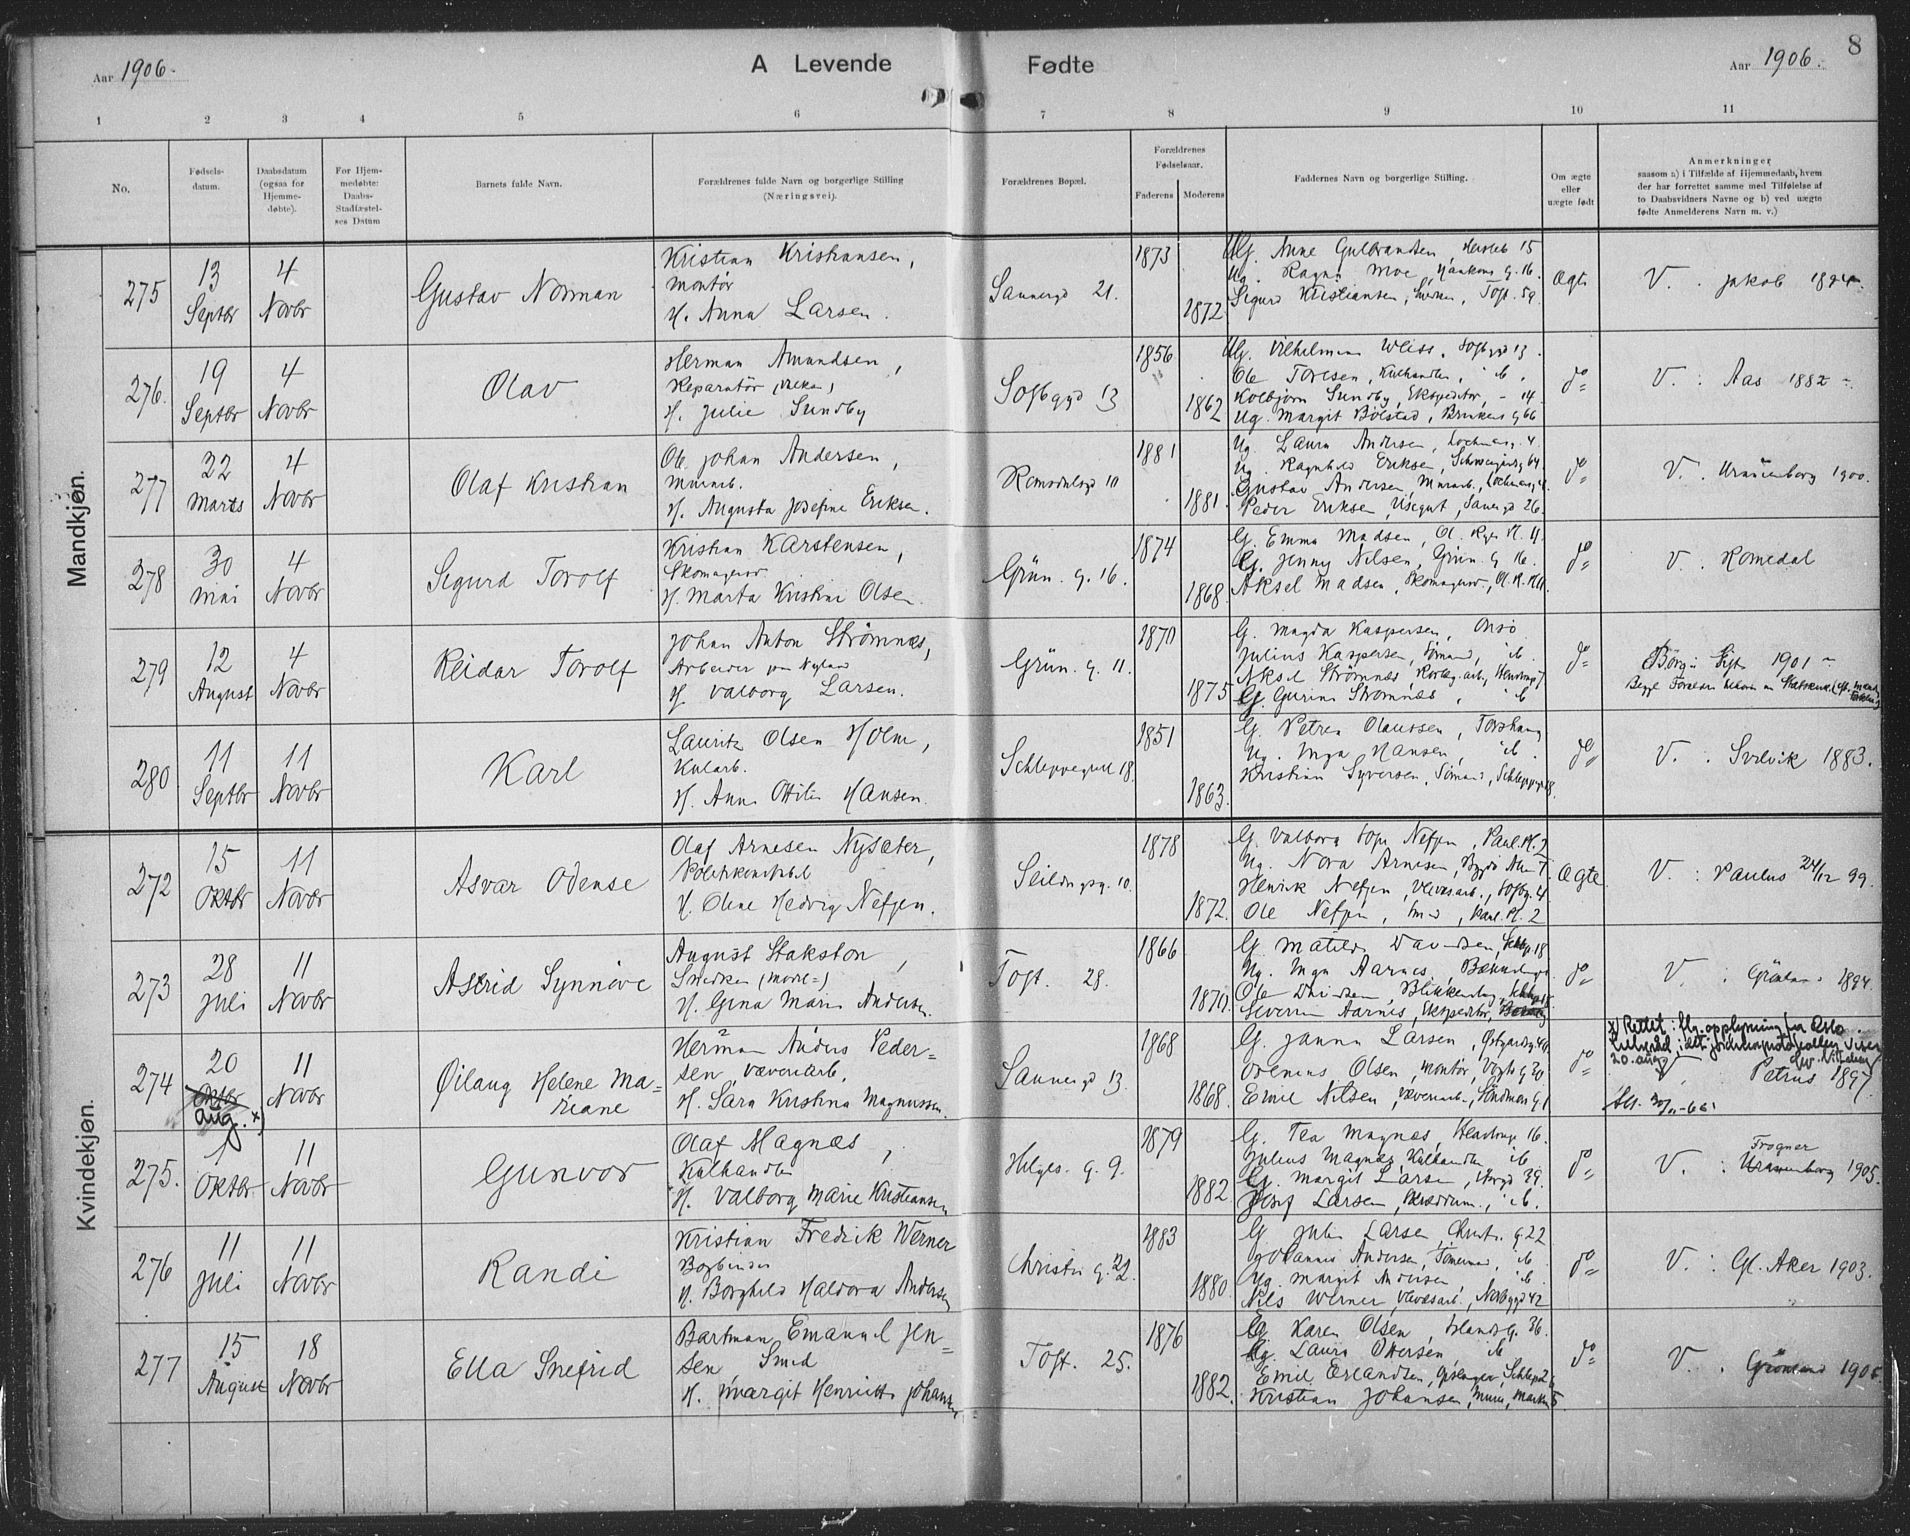 Aar 1906.
A Levende Fødte
Aar 1906.
8
1 2 3 4 5 6 7 8 9 10 11
No.
Fødsels-
datum.
Daabsdatum
(ogsaa for
Hjemme-
døbte).
For Hjem-
medøbte:
Daabs-
Stadfæstel-
ses Datum
Barnets fulde Navn.
Forældrenes fulde Navn og borgerlige Stilling
(Næringsvei).
Forældrenes Bopæl.
Forældrenes
Fødselsaar.
Faderens Moderens
Faddernes Navn og borgerlige Stilling.
Om ægte
eller
uægte født
Anmerkninger
saasom a) i Tilfælde af Hjemmedaab, hvem
der har forrettet samme med Tilføielse af
to Daabsvidners Navne og b) ved uægte
fødte Anmelderens Navn m. v.)
Mandkjøn.
275
13
Septbr
4
Novbr
Gustav Norman
Kristian Kristiansen,
Montør
H. Anna Larsen.
Sannergd 21.
1873
1872
G. Anne Gulbrandsen, 15
Ug. Ragna Moe, g. 16.
Sigurd Kristiansen, Toft. 59
Ægte
V. Jakob 1894
276.
19
Septbr
4
Novbr
Olav
Herman Amundsen,
Reparatør
H. Julie Sundby
Sofbggd 13
1856
1862
Ug. Vilhelmine Weiss, Sofbgd 13.
Ole Toresen, Kulhandler, ib.
Kolbjørn Sundby, Ekspeditør, - 14
Ug. Margit Bolstad, g 66
do
V. : Aas 1882
277
22
Marts
4
Novbr
Olaf Kristian
Ole Johan Andersen,
Murarb.
H. Augusta Josefine Eriksen.
Romsdalsgd 10
1881
1881
Ug. Laura Andersen, 4.
Ug. Ragnhild Eriksen, 64
Gustav Andersen, Murarb.,
Peder Eriksen, Visegut, Sanergd 26.
do
V. Uranienborg 1900.
278
30
Mai
4
Novbr
Sigurd Torolf
Kristian Karstensen,
Skomager
H. Marta Kristine Olsen.
Grün. g. 16.
1874
1868
G. Emma Madsen, Ol. Ryes Pl. 11
G. Jenny Nilsen, Grün. g 16.
Aksel Madsen, Skomager, Ol. R. Pl 11
do
V. Romedal
279
12
August
4
Novbr
Reidar Torolf
Johan Anton Strømnæs,
Arbeider paa Nyland
H. Valborg Larsen.
Grün. g. 11.
1870
1875
G. Magda Kaspersen, Onsø
Julius Kaspersen, Sømand, ib
Aksel Strømnæs,
G. Gurine Strømnæs, ib
do
Borg. Gift 1901
280
11
Septbr
11
Novbr
Karl
Lauritz Olsen Holm,
Kularb.
H. Anna Ottilie Hansen.
Schleppegrell 18.
1851
1863
G. Petra Olaussen, Torshaug
Ug. Inga Hansen, ib.
Kristian Syversen, Sømand, Schleppegr 18.
do
V. Svelvik 1883.
Kvindekjøn.
272
15
Oktbr
11
Novbr
Asvar Odense
Olaf Arnesen Nysæter,
Politikonstabel
H. Oline Hedvig Nefzen.
Seildugsg. 10.
1878
1872
G. Valborg Nefzen, Paul. Pl. 2
Ug. Nora Arnesen,
Henrik Nefzen, Vævearb., Sofbg. 4
Ole Nefzen, Smed, Paul. Pl. 2
Ægte
V. : Paulus 24/12 99.
273
28
Juli
11
Novbr
Astrid Synnöve
August Stakston,
Snedker (Model-)
H. Gina Marie Andersen.
Toft. 28.
1866
1870
G. Matilde Davidsen, Schlp. 18
Ug. Inga Aarnes,
Ole Davidsen, Blikkenslag., Schlp. 18
Severin Aarnes, Ekspeditør,
do
V. : Grönland 1894.
274
20
Oktbr
Aug. x)
11
Novbr
Øilaug Helene Ma-
riane
Herman Anders Peder-
sen, Vævenarb.
H. Sara Kristina Magnussen.
Sannergd 13.
1868
1868
G. Janna Larsen,
Ovenius Olsen, Montør, Vogts g 20
Emil Nilsen, Væverarb., g 1
do
x) Rettet: flg. opplysning fra Oslo
20. aug
V. Petrus 1897.
275.
1
Oktbr
11
Novbr
Gunvor
Olaf Magnæs,
Kulhandler
H. Valborg Marie Kristiansen
Helges. g. 9.
1879
1882
G. Tea Magnæs, 16.
Julius Magnæs, Kulhandler ib
G. Margit Larsen, 39.
Josef Larsen, ib.
do
V. : Frogner
Uranienborg 1905.
276
11
Juli
11
Novbr
Randi
Kristian Fredrik Werner
Bogbinder
H. Borghild Haldora Andersen
Christies g. 22
1883
1880
G. Julie Larsen, Christ. g. 22
Johannes Andersen, Tømmermd, ib.
Ug. Margit Andersen ib.
Nils Werner, Vævesarb., Norbygd 42
do
V. : Gl. Aker 1903.
277
15
August
18
Novbr
Ella Snefrid
Bartman Emanuel Jen-
sen Smed
H. Margit Henriette Johansen
Toft. 25.
1876
1882
G. Karen Olsen, Islands g. 36.
Ug. Laura Ottersen ib
Emil Erlandsen,
Kristian Johansen, Murer,
do
V. Grönland 1906.